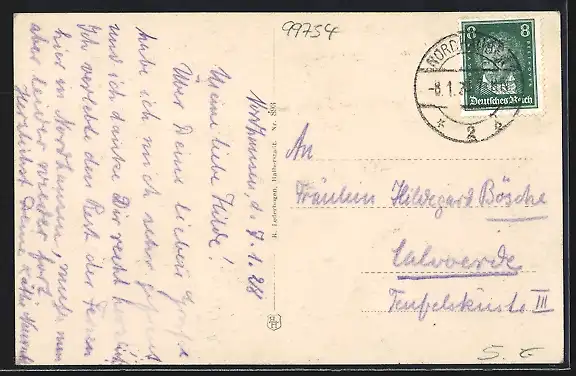 99754
Northausen, d. 7.1.28
Meine liebe Hilde!
Über Deine lieben Grüße
habe ich mich sehr gefreut
und ich danke Dir recht herzlich.
Ich verlebte den Rest der Ferien
hier in Nordhausen, muß nun
aber leider wieder fort.
Herzlichst Deine Käthe
R. Lederbogen, Halberstadt. Nr.
NORDHAUSEN
-8.1.28
* 2 *
8 8
BEETHOVEN
Deutsches Reich
An
Fräulein Hildegard Bösche
Calvoerde
Teufelsküste III
S. E